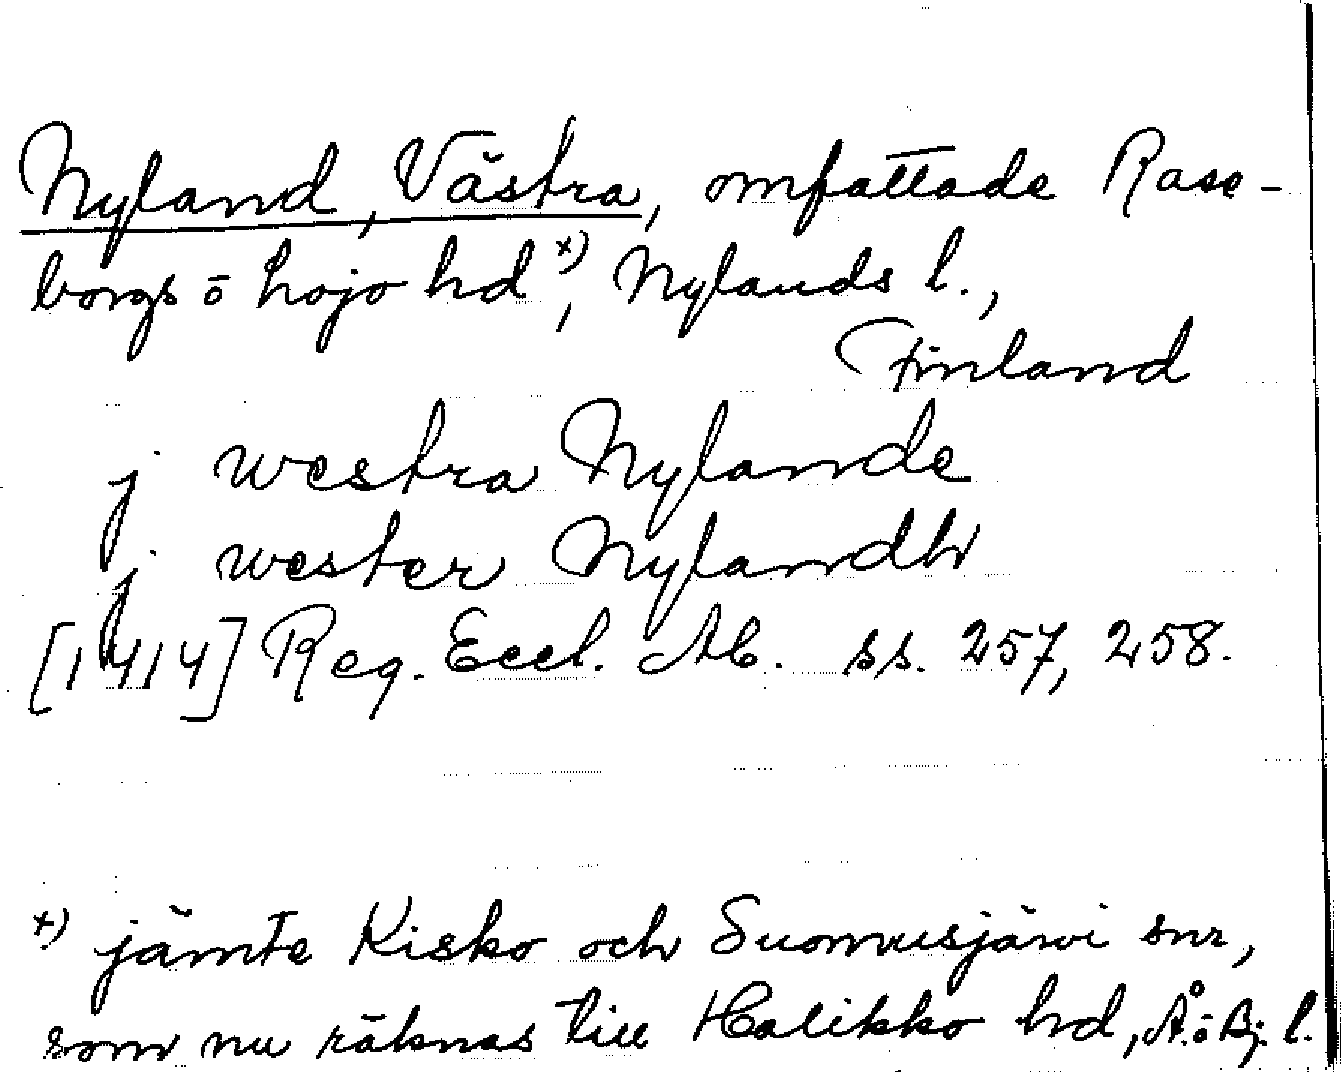 Nyland, Västra, omfattade Rase-
borgs o Lojo hd x), Nylands l.,
Finland
j westra Nylande
j wester Nylandh
[1414] Reg. Eccl. Ab. ss. 257, 258.
x) jämte Kisko och Suomusjärvi snr,
som nu räknas till Halikko hd, Å. o Bj. l.